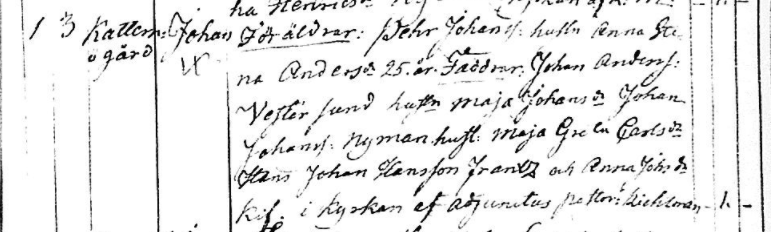 1 3 Kattem: Johan Föräldrar: Pehr Johans f: hustn Anna Sti
ögård na Anders dr 25. år. Faddrar: Johan Anders f:
Vester sund hustn Maja Johans dr Johan
Johans f: Nyman hust: Maja Greta Carls dr
Hans Johan Hansson Frantz och Anna Johs dr
i kyrkan af adjunctus pastor: - 1. -